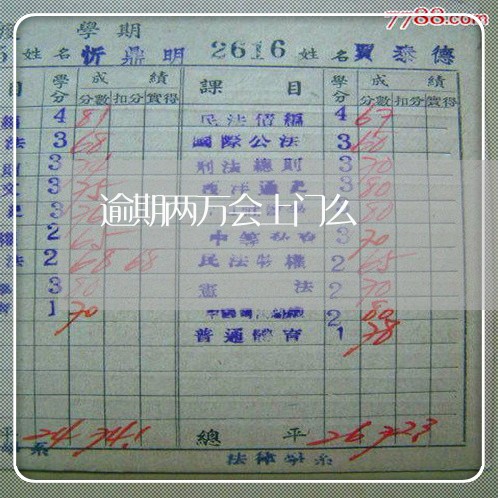 7788.com
學期
姓名 忻鼎明 2616 姓名 賈泰德
目 學分 成績 課目 學分 成績
分數 扣分 實得 分數 扣分 實得
4 81 民法債編 4 67
法 3 68 國際公法 3 60
3 刑法總則 3 70
3 75 3 80
逾期两万会上门么
2 65 3 70
法 2 68 68 民法物權 2 65
3 80 憲法 2 70
1 70 2 80
普通體育 1 78
平 24 74.1 總平 26 72.3
系 法律學系